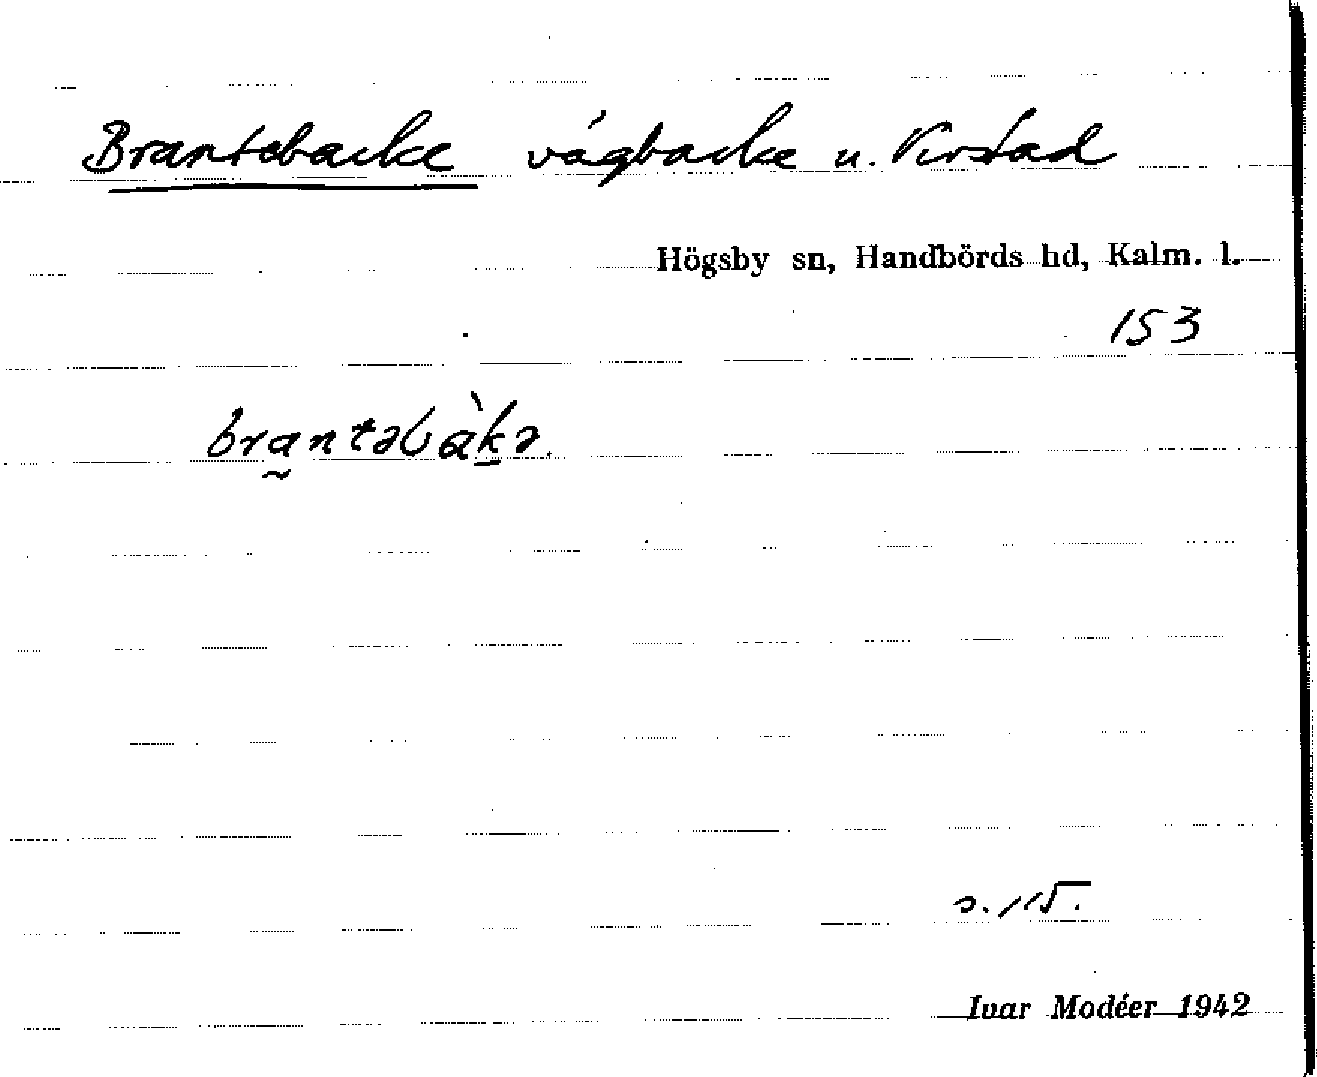 Brantebacke vägbacke u. Virstad
Högsby sn, Handbörds hd, Kalm. l.
153
bra̰ntəbàk̠ə.
s. 115.
Ivar Modéer 1942